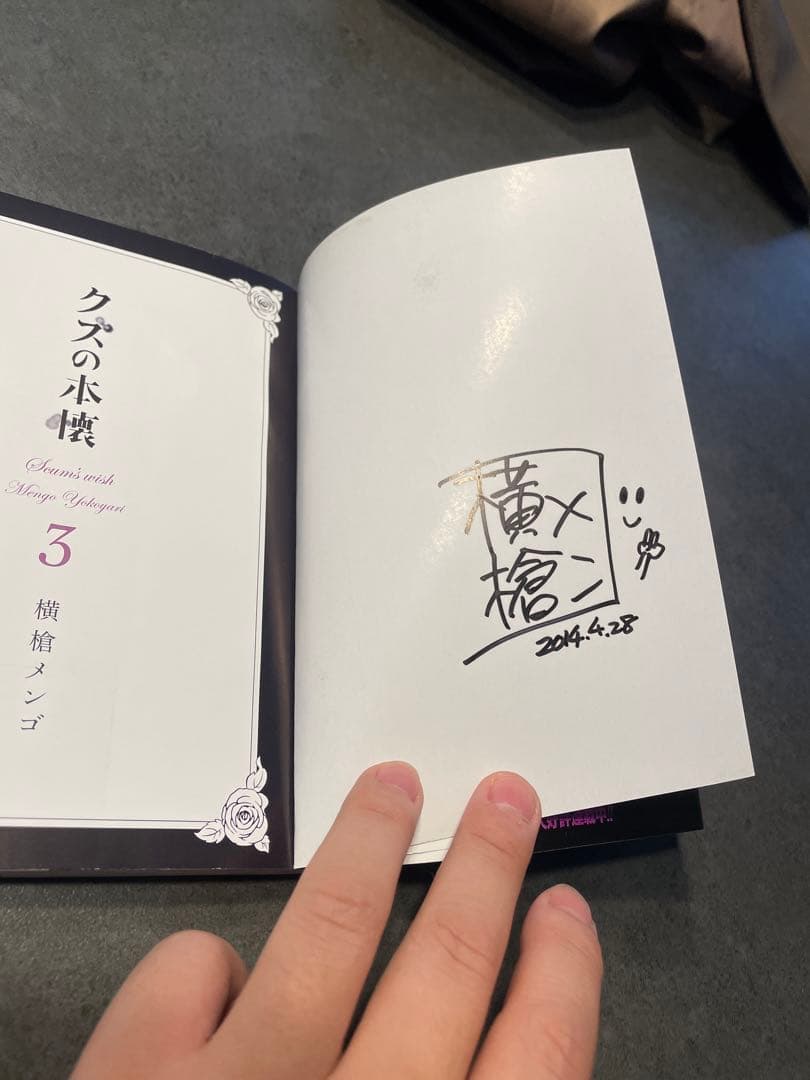 クズの本懐
Scum's wish
Mengo Yokoyari
3
横槍メンゴ
横槍
メン
2014.4.28
大好評連載中!!